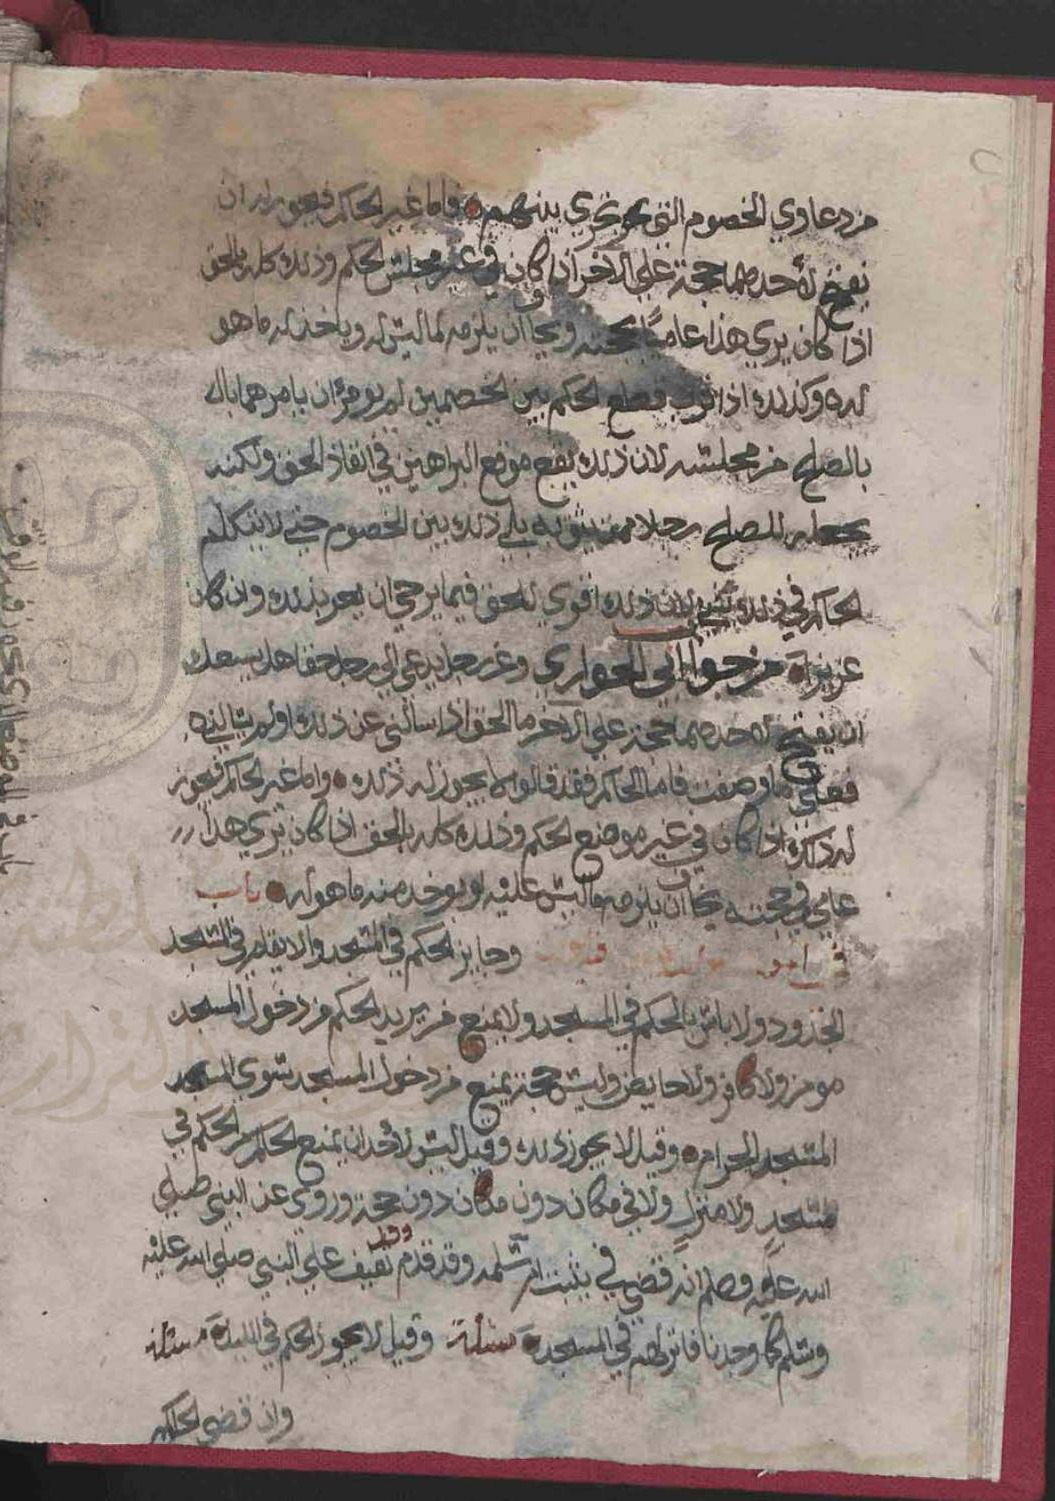 من دعاوي الخصوم التي تجري بينهم واما غير الحاكم فيجوز له ان
يفتح لاحدهما حجة على الاخر اذا كان في غير مجلس الحكم وذلك كله بالحق
اذا كان يري هذا عاميا بحجته ويخاف ان يلزمه ما ليس له وياخذ له ما هو
له وكذلك اذا قطع الحكم بين الخصمين لم يومر ان يامرهما بال
بالصلح من مجلسه لان ذلك يقع موقع البراهين في انفاذ الحق ولكنه
يجعل للصلح رجلا ممن يثق به يلي ذلك بين الخصوم حتى لا يتكلم
الحاكم في ذلك بشي لان ذلك اقوي للحق فيما يرجي ان يعز بذلك وان كان
عزيزا من جواب ابي الحواري وعن رجل يدعي الي رجل حقا هل يسعك
ان يفتح لاحدهما حجة على الاخر ما الحق اذا سالني عن ذلك او لم يسالني
فعلى ما وصفت فاما الحاكم فقد قالوا لا يجوز له ذلك واما غير الحاكم فيجوز
له ذلك اذا كان في غير موضع الحكم وذلك كله بالحق اذا كان يري هذا
عامي في حجته يخاف ان يلزمه ما ليس عليه او يوخذ منه ما هو له باب
في وجايز الحكم في المسجد ولا يقام في المسجد
الحدود ولا باس بالحكم في المسجد ولا يمنع من يريد الحكم من دخول المسجد
مومن ولا كافر ولا حايض وليس حجة يمنع من دخول المسجد سوي المسجد
المسجد الحرام وقيل لا يجوز ذلك وقيل ليس لاحد ان يمنع الحاكم من الحكم في
مسجد ولا منزل ولا في مكان دون مكان دون حجة وروي عن النبي صلي
الله عليه وسلم انه قضي في بيت ام سلمة وقد قدم وفد ثقيف علي النبي صلي الله عليه
وسلم كما وجدنا فانزلهم في المسجد مسئلة وقيل لا يجوز الحكم في الليل مسئلة
وان قضي الحاكم